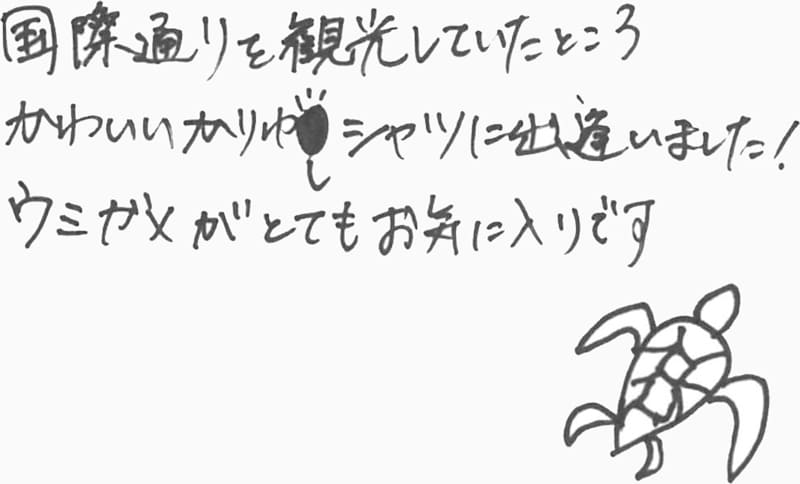 国際通りを観光していたところ
かわいいかりゆしシャツに出逢いました!
ウミガメがとてもお気に入りです